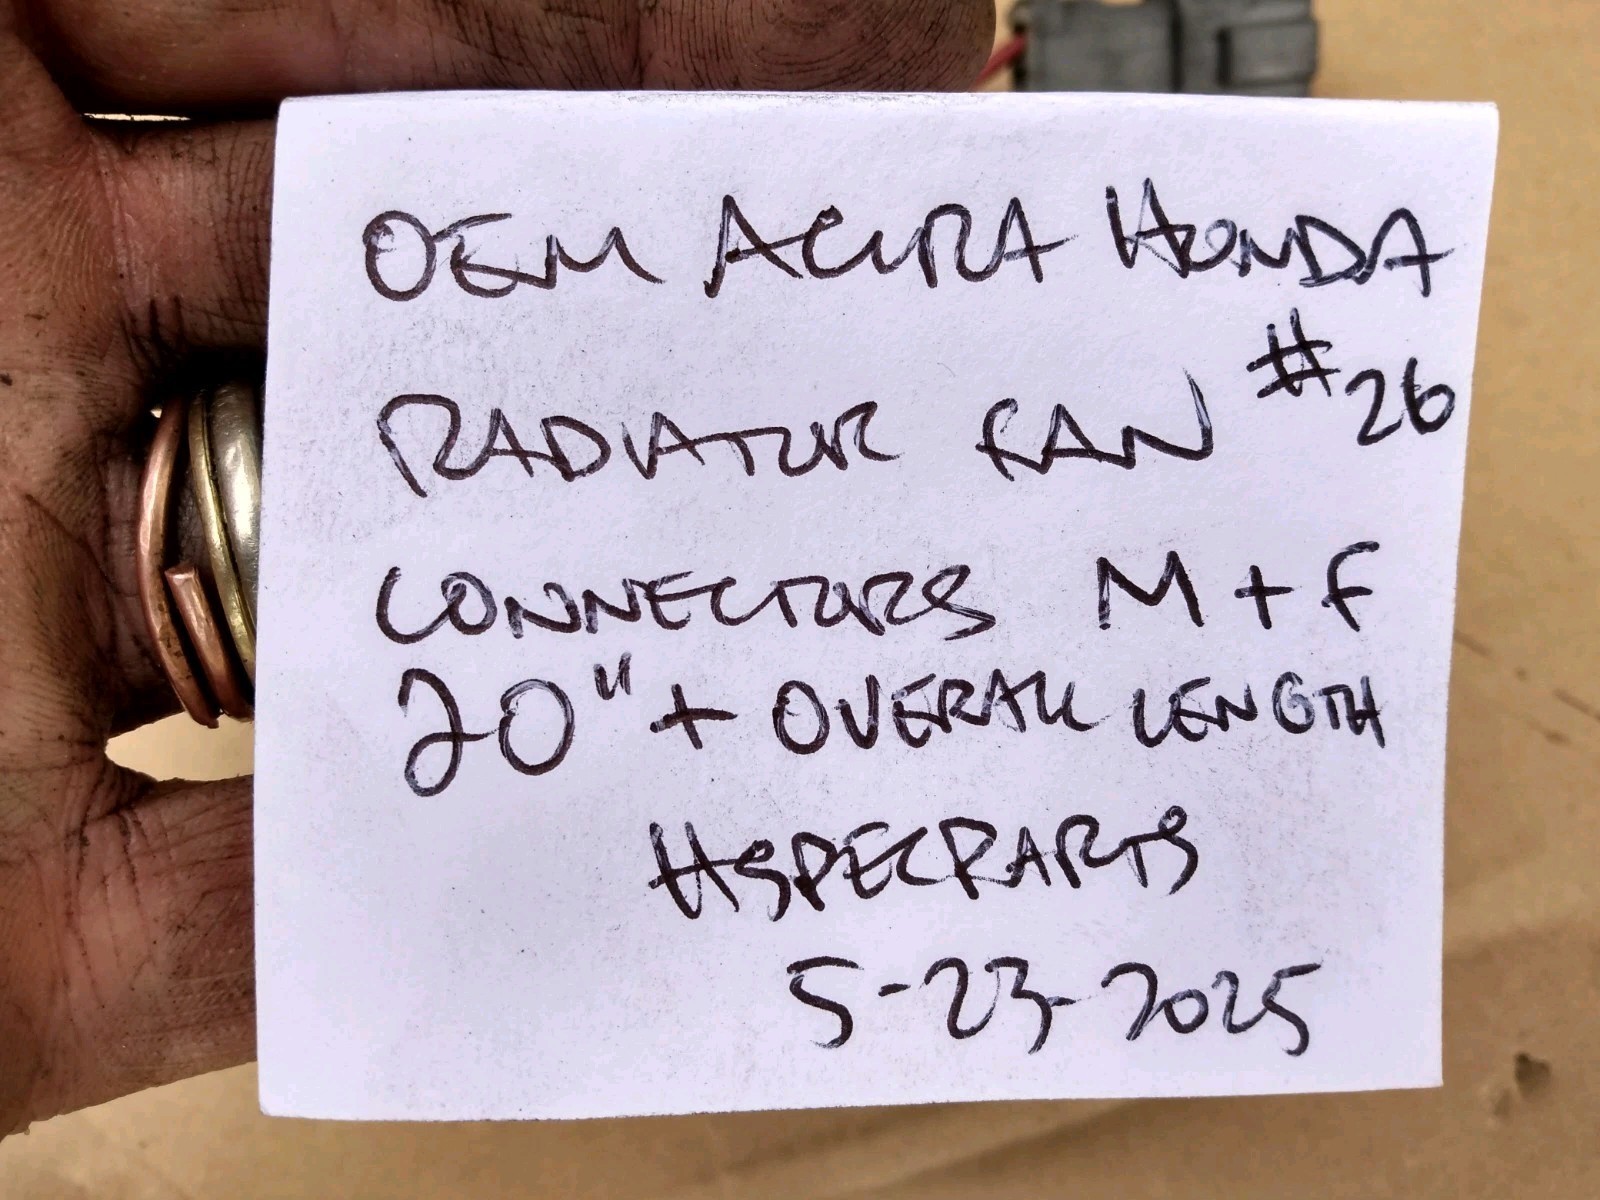 OEM ACURA HONDA
RADIATOR FAN #26
CONNECTORS M + F
20" + OVERALL LENGTH
HSPECPARTS
5-23-2025